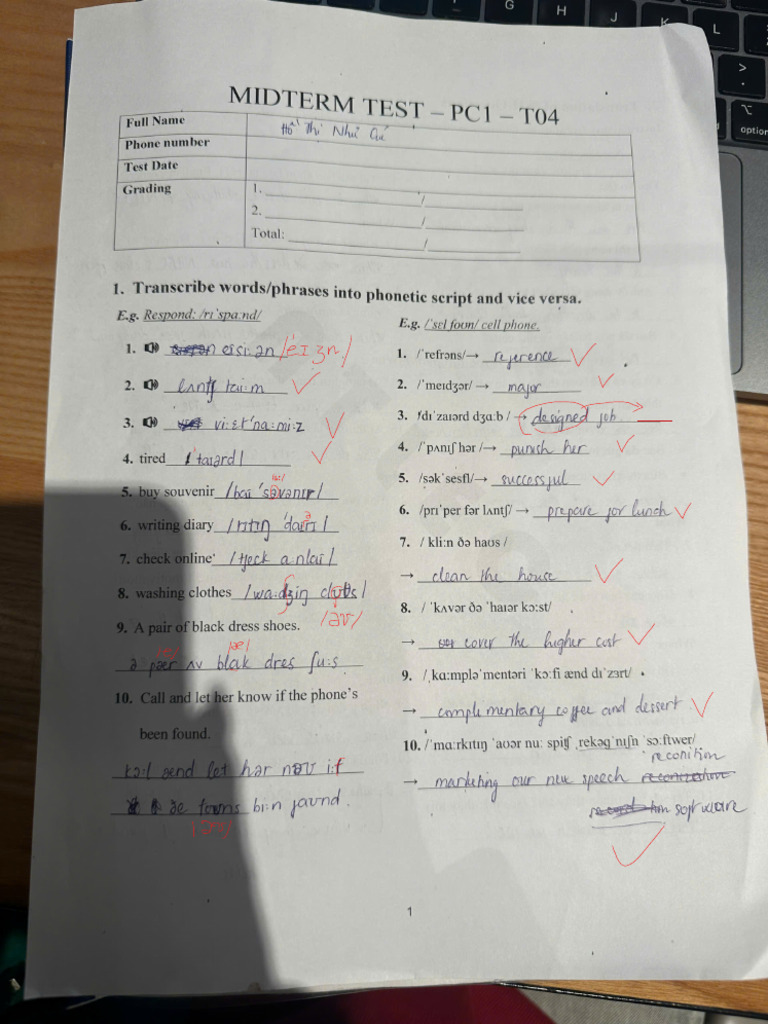 G H J K L
>
option
MIDTERM TEST – PC1 – T04
Full Name Hồ Thị Như
Phone number
Test Date
Grading 1. /
2. /
Total: /
1. Transcribe words/phrases into phonetic script and vice versa.
E.g. Respond: /rɪˈspɑːnd/
1. eɪʒn/
2. lʌntʃ taɪːm
3. viːɛtˈnaːmiːz
4. tired /ˈtaɪərd/
5. buy souvenir /baɪ ˈsəvənɪr/
6. writing diary /rɪtɪŋ ˈdaɪrɪ/
7. check online /tʃeck anlaɪ/
8. washing clothes
/əʊ/
9. A pair of black dress shoes.
/æ/
ə pər ʌv blak dres ʃuːs
10. Call and let her know if the phone's
been found.
kɔːl aend let hər nəʊ iːf
biːn faund.
E.g. /ˈsɛl foʊn/ cell phone.
1. /ˈrefrəns/→ reference
2. /ˈmeɪdʒər/ → major
3. /dɪˈzaɪərd dʒɑːb / → designed job
4. /ˈpʌnɪʃ hər /→ punish her
5. /səkˈsesfl/→ successful
6. /prɪˈper fər lʌntʃ/ → prepare for lunch
7. / kliːn ðə haʊs /
→ clean the house
8. / ˈkʌvər ðə ˈhaɪər kɔːst/
→ cover the higher cost
9. /ˌkɑːmpləˈmentəri ˈkɔːfi ænd dɪˈzɜrt/
→ complementary coffee and dessert
10. /ˈmɑːrkɪtɪŋ ˈaʊər nuː spiʧ ˌrekəgˈnɪʃn ˈsɔːftwer/
reconition
→ marketing our new speech
software
1